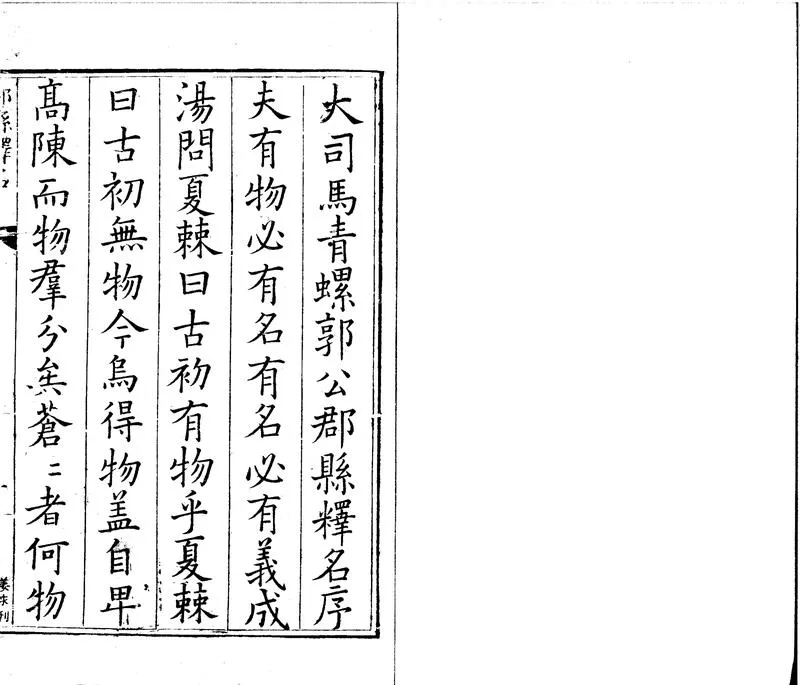 大司馬青螺郭公郡縣釋名序
夫有物必有名有名必有義成
湯問夏棘曰古初有物乎夏棘
曰古初無物今烏得物盖自卑
髙陳而物羣分矣蒼〻者何物
郡縣釋名